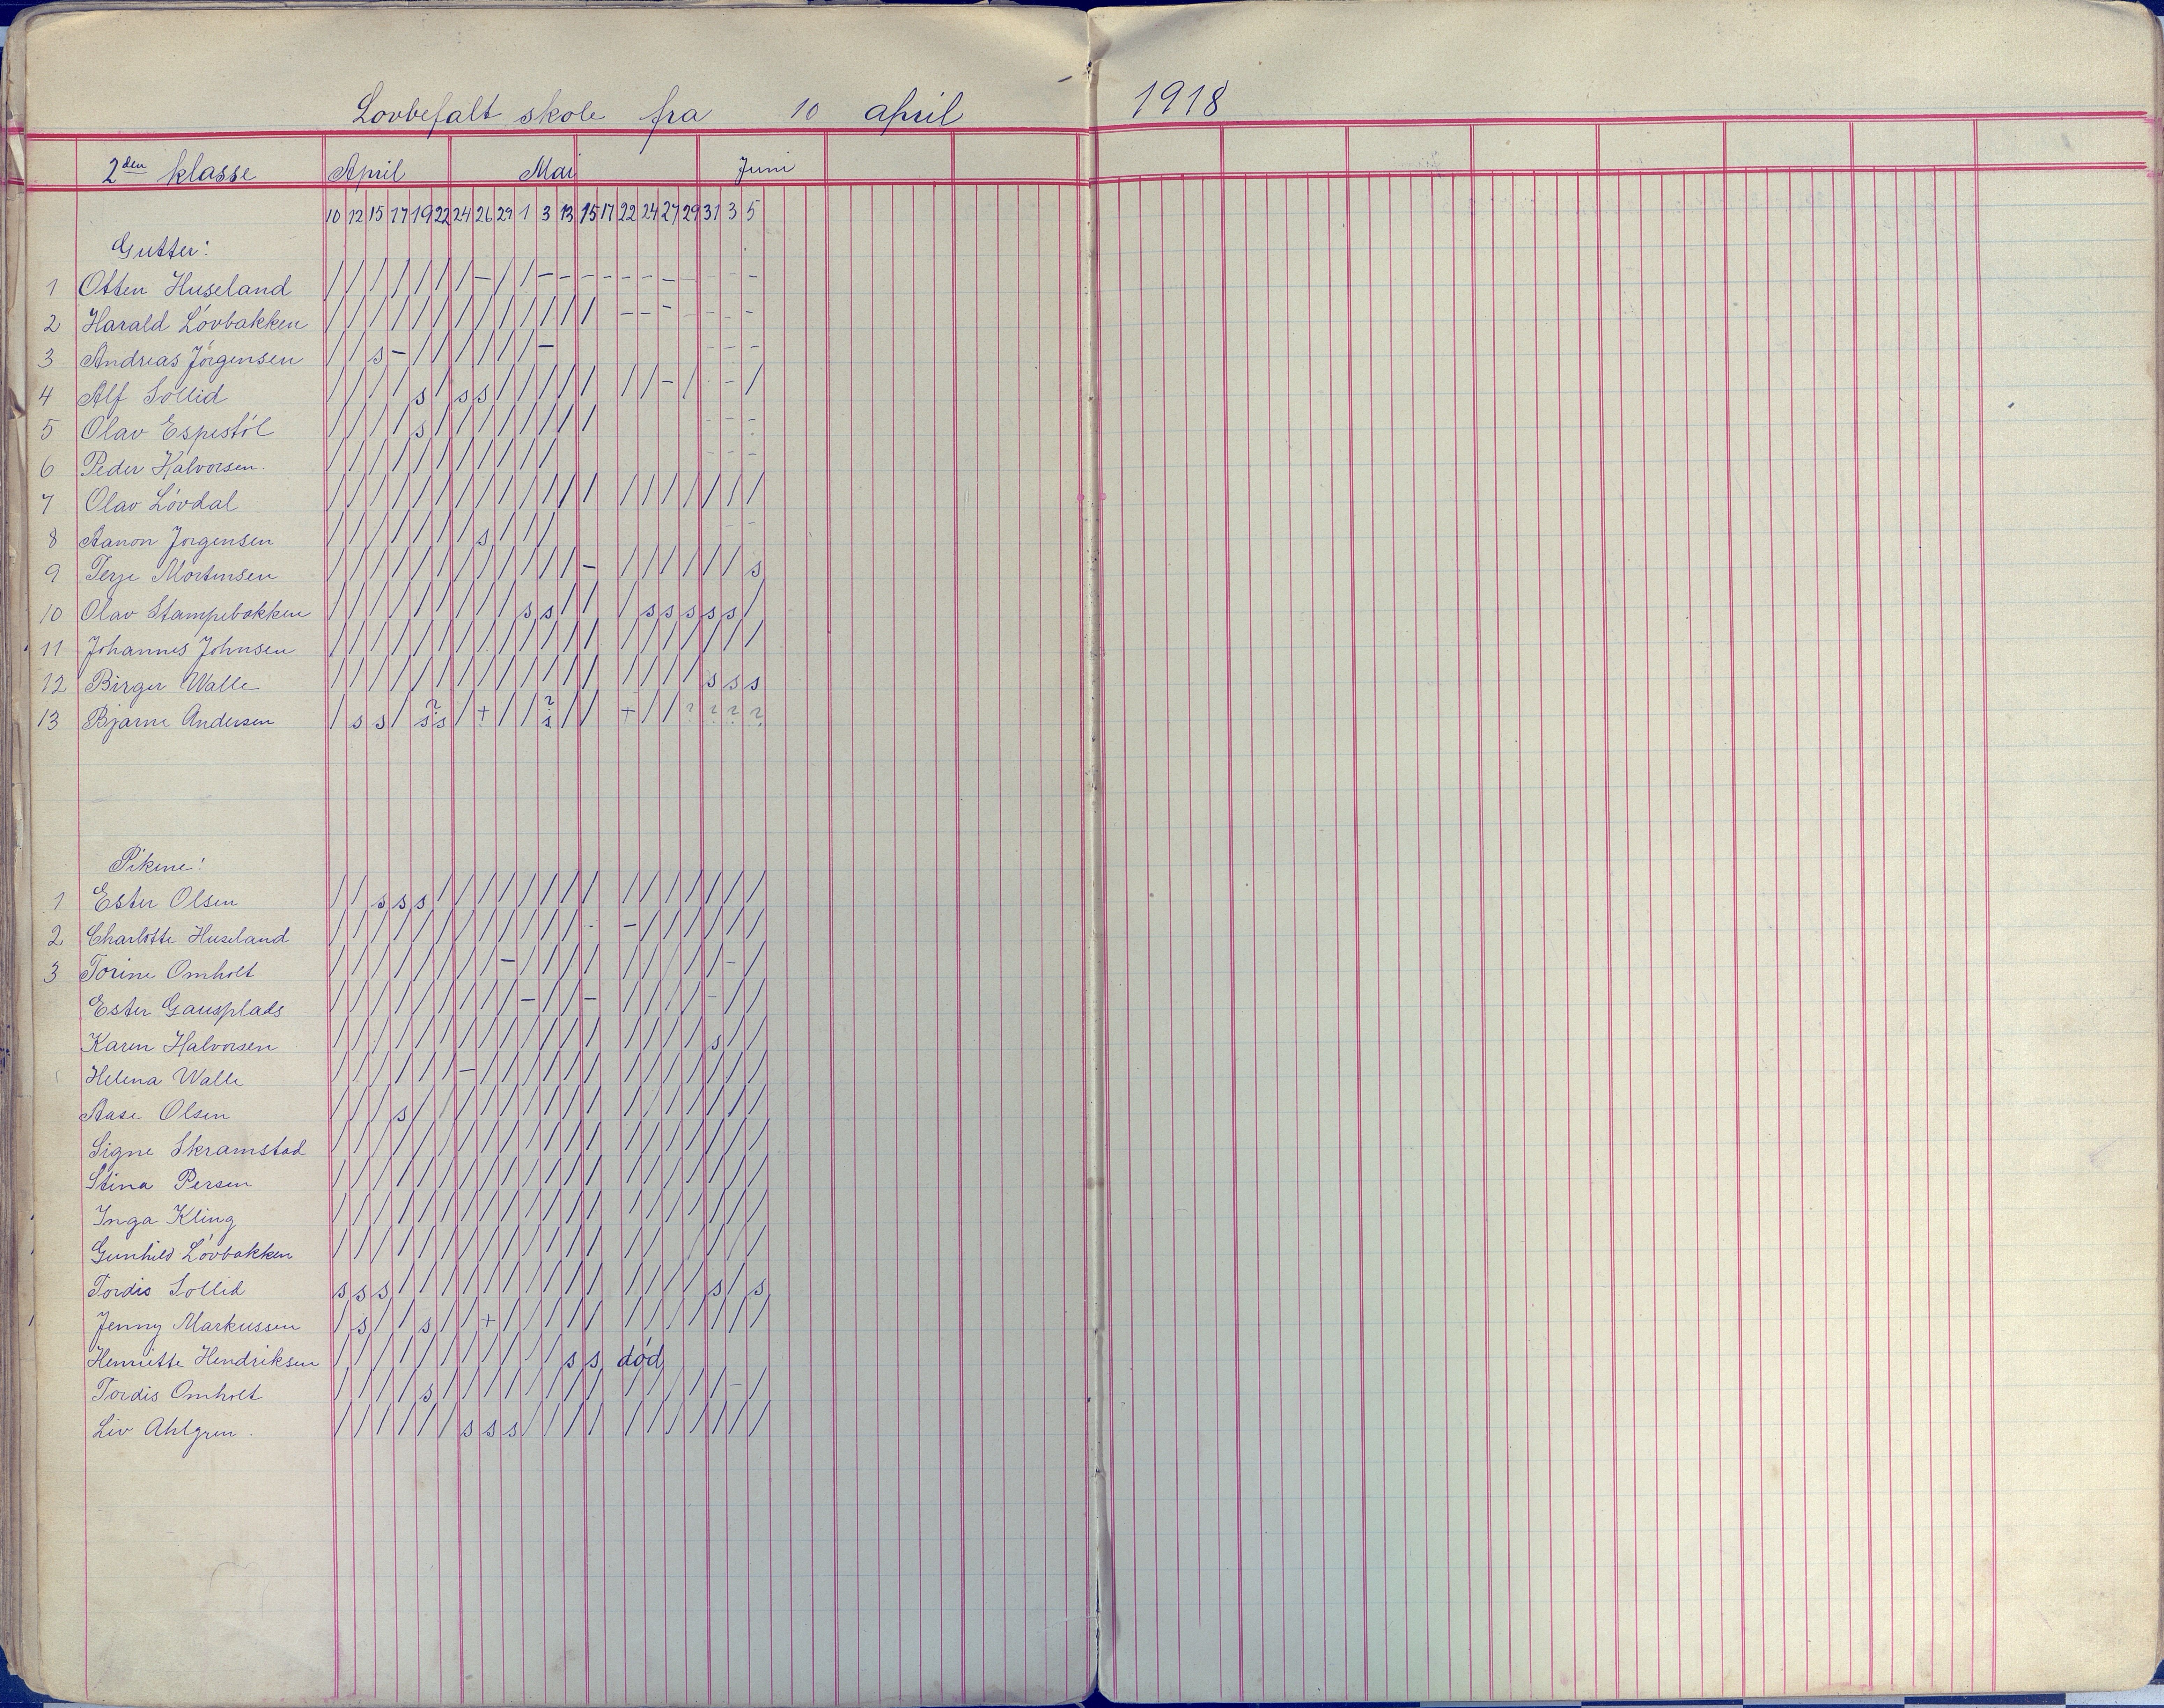 Lovbefalt skole fra 10 april 1918
2den klasse April Mai Juni
10 12 15 17 19 22 24 26 29 1 3 13 15 17 22 24 27 29 31 3 5
Gutter:
1 Otten Huseland / / / / / / / - / / - - - - - - - - - - -
2 Harald Lövbakken / / / / / / / / / / / / / - - - - - - -
3 Andreas Jörgensen / / s - / / / / / / - - - -
4 Alf Sollid / / / / s / s s / / / / / / / - / - /
5 Olav Espestöl / / / / s / / / / / / / / - - -
6 Peder Halvorsen. / / / / / / / / / / / - - -
7 Olav Lövdal / / / / / / / / / / / / / / / / / / / /
8 Aanon Jorgensen / / / / / / / s / / / - -
9 Terje Mortensen / / / / / / / / / / / / - / / / / / / s
10 Olav Stampebakken / / / / / / / / / s s / / / s s s s s /
11 Johannes Johnsen / / / / / / / / / / / / / / / / / / / /
12 Birger Walle / / / / / / / / / / / / / / / / / s s s
13 Bjarne Andersen / s s / s? s / + / / s? / / + / / ? ? ? ?
Pikene:
1 Ester Olsen / / s s s / / / / / / / / / / / / / / /
2 Charlotte Huseland / / / / / / / / / / / / - - / / / / / /
3 Torine Omholt / / / / / / / / - / / / / / / / / / - /
Ester Gausplads / / / / / / / / / - / / - / / / / - / /
Karen Halvorsen / / / / / / / / / / / / / / / / / s / /
Helena Walle / / / / / / - / / / / / / / / / / / / /
Aase Olsen / / / s / / / / / / / / / / / / / / / /
Signe Skramstad / / / / / / / / / / / / / / / / / / / /
Stina Persen / / / / / / / / / / / / / / / / / / / /
Inga Kling / / / / / / / / / / / / / / / / / / / /
Gunhild Lövbakken / / / / / / / / / / / / / / / / / / /
Tordis Sollid s s s / / / / / / / / / / / / / / s / s
Jenny Markussen / s / / s / / + / / / / / / / / / / / /
Henriette Hendriksen / / / / / / / / / / / s s död
Tordis Omholt / / / / s / / / / / / / / / / / / / - /
Liv Ahlgren. / / / / / / s s s / / / / / / / / / / /